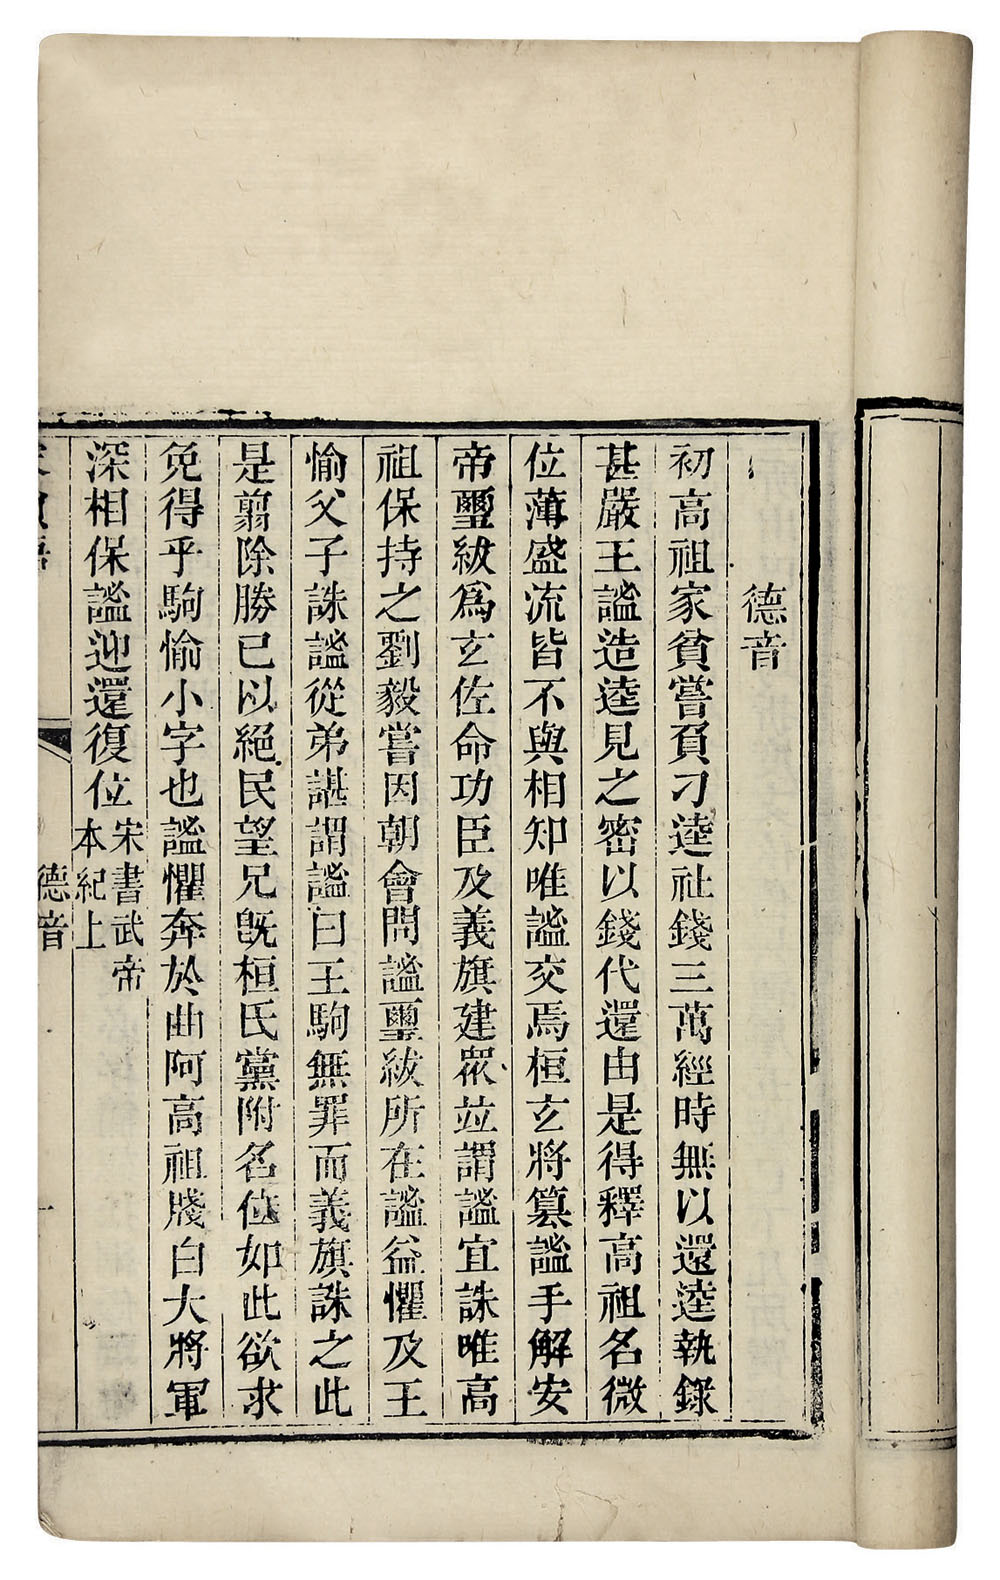 德音
初高祖家貧嘗負刁逵社錢三萬經時無以還逵執錄
甚嚴王謐造逵見之密以錢代還由是得釋高祖名微
位薄盛流皆不與相知唯謐交焉桓玄將篡謐手解安
帝璽紱爲玄佐命功臣及義旗建衆並謂謐宜誅唯高
祖保持之劉毅嘗因朝會問謐璽紱所在謐益懼及王
愉父子誅謐從弟諶謂謐曰王駒無罪而義旗誅之此
是翦除勝己以絕民望兄旣桓氏黨附名位如此欲求
免得乎駒愉小字也謐懼奔於曲阿高祖牋白大將軍
深相保謐迎還復位宋書武帝
本紀上
德音
一